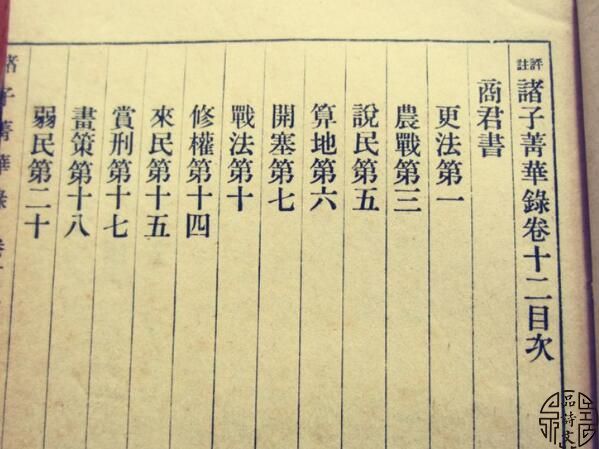 評註諸子菁華錄卷十二目次
商君書
更法第一
農戰第三
說民第五
算地第六
開塞第七
戰法第十
修權第十四
來民第十五
賞刑第十七
畫策第十八
弱民第二十
諸子菁華錄卷十
品詩文